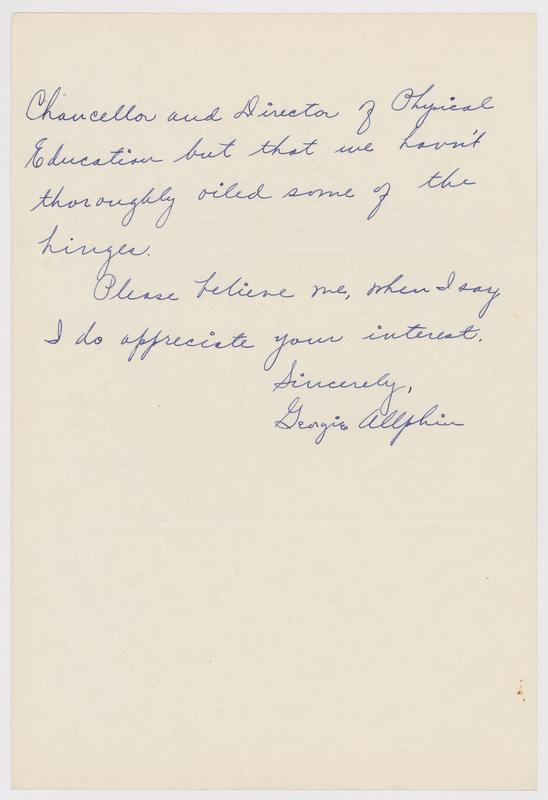 Chancellor and Director of Physical
Education but that we havn't
thoroughly oiled some of the
hinges.
Please believe me, when I say
I do appreciate your interest.
Sincerely,
Georgie Allphin